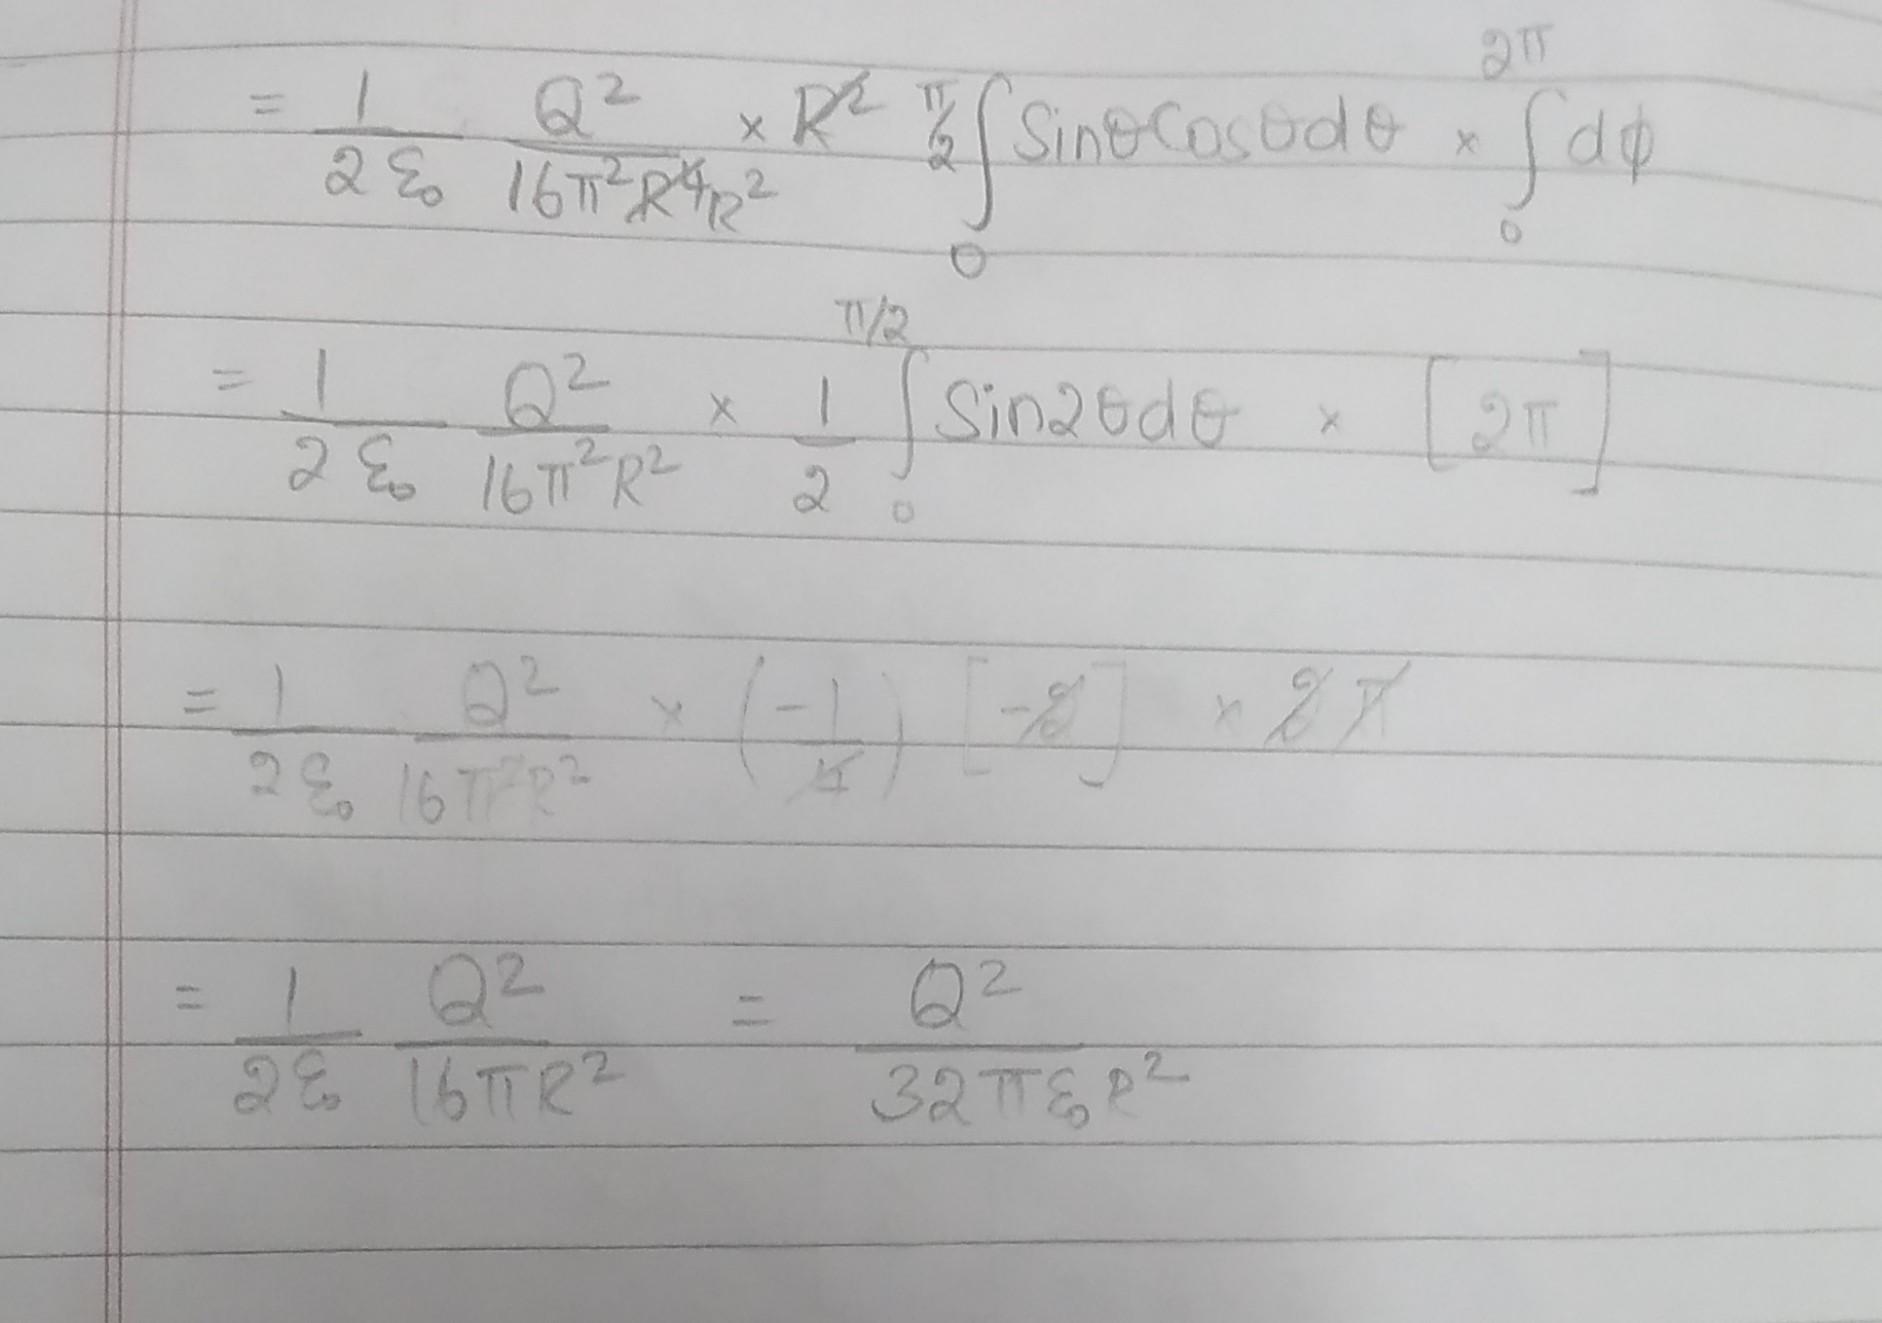 = 1/2ε₀ Q²/16π²R⁴R² × R² ∫₀^π/2 Sinθ Cosθdθ × ∫₀^2π dϕ
= 1/2ε₀ Q²/16π²R² × 1/2 ∫₀^π/2 Sin2θdθ × [2π]
= 1/2ε₀ Q²/16π²R² × (-1/4) [-2] × 2π
= 1/2ε₀ Q²/16πR² = Q²/32πε₀R²